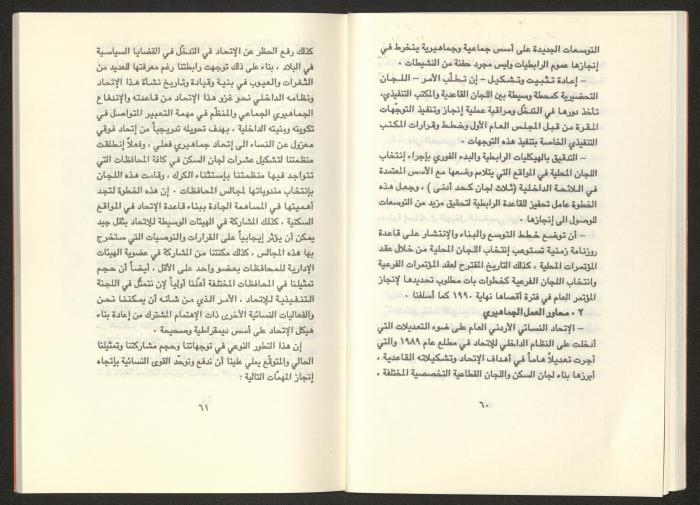 التوسعات الجديدة على أسس جماعية وجماهيرية ينخرط في
إنجازها عموم الرابطيات وليس مجرد حفنة من النشيطات .
– إعادة تثبيت وتشكيل – إن تطلّب الأمر – اللجان
التحضيرية كمحطة وسيطة بين اللجان القاعدية والمكتب التنفيذي،
تأخذ دورها في التدخّل ومراقبة عملية إنجاز وتنفيذ التوجّهات
المقرة من قبل المجلس العام الأول وخطط وقرارات المكتب
التنفيذي الخاصة بتنفيذ هذه التوجهات .
– التدقيق بالهيكليات الرابطية والبدء الفوري بإجراء إنتخاب
اللجان المحلية في المواقع التي يتلاءم وضعها مع الأسس المعتمدة
في اللائحة الداخلية (ثلاث لجان كحد أدنى) ، وجعل هذه
الخطوة عامل تحفيز للقاعدة الرابطية لتحقيق مزيد من التوسعات
للوصول الى إنجازها .
– أن توضع خطط التوسع والبناء والإنتشار على قاعدة
روزنامة زمنية تستوعب إنتخاب اللجان المحلية من خلال عقد
المؤتمرات المحلية ، كذلك التاريخ المقترح لعقد المؤتمرات الفرعية
وانتخاب اللجان الفرعية كخطوات بات مطلوب تحديدها لإنجاز
المؤتمر العام في فترة أقصاها نهاية ١٩٩٠ كما أسلفنا .
٢ . محاور العمل الجماهيري
– الإتحاد النسائي الأردني العام على ضوء التعديلات التي
أدخلت على النظام الداخلي للإتحاد في مطلع عام ١٩٨٩ والتي
أجرت تعديلاً هاماً في أهداف الإتحاد وتشكيلاته القاعدية ،
أبرزها بناء لجان السكن واللجان القطاعية التخصصية المختلفة .
٦٠
كذلك رفع الحظر عن الإتحاد في التدخّل في القضايا السياسية
في البلاد ، بناء على ذلك توجهت رابطتنا رغم معرفتها للعديد من
الثغرات والعيوب في بنية وقيادة وتاريخ نشأة هذا الإتحاد
ونظامه الداخلي نحو غزو هذا الإتحاد من قاعدته والإندفاع
الجماهيري الجماعي والمنظّم في مهمة التعبير المتواصل في
تكوينه وبنيته الداخلية ، بهدف تحويله تدريجياً من إتحاد فوقي
معزول عن النساء الى إتحاد جماهيري فعلي ، وفعلاً إنطلقت
منظمتنا لتشكيل عشرات لجان السكن في كافة المحافظات التي
تتواجد فيها منظمتنا بإستثناء الكرك ، وقامت هذه اللجان
بإنتخاب مندوباتها لمجالس المحافظات . إن هذه الخطوة لتجد
أهميتها في المساهمة الجادة ببناء قاعدة الإتحاد في المواقع
السكنية ، كذلك المشاركة في الهيئات الوسيطة للإتحاد بثقل جيد
يمكن أن يؤثر إيجابياً على القرارات والتوصيات التي ستخرج
بها هذه المجالس ، كذلك مكنتنا من المشاركة في عضوية الهيئات
الإدارية للمحافظات بعضو واحد على الأقل ، أيضاً أن حجم
تمثيلنا في المحافظات المختلفة أهلنا أولاً لإن نتمثّل في اللجنة
التنفيذية للإتحاد ، الأمر الذي من شأنه أن يمكننا نحن
والفعاليات النسائية الأخرى ذات الإهتمام المشترك من إعادة بناء
هيكل الإتحاد على أسس ديمقراطية وصحيحة .
إن هذا التطور النوعي في توجهاتنا وحجم مشاركتنا وتمثيلنا
الحالي والمتوقّع يملي علينا أن ندفع ونوحّد القوى النسائية بإتجاه
إنجاز المهمّات التالية :
٦١